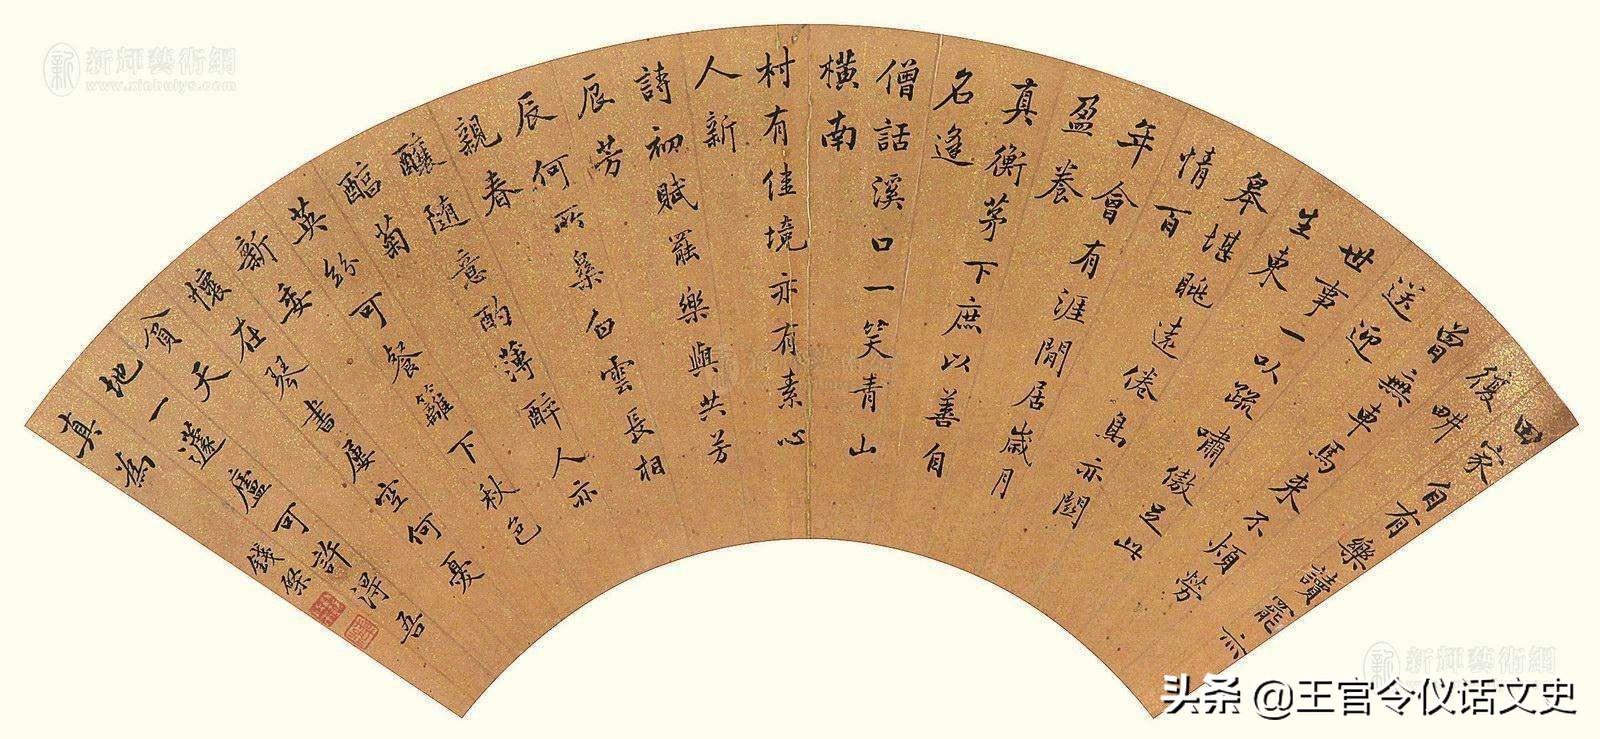 田家自有樂讀罷亦
復畊
曾無車馬來不煩勞
送迎
世事一以疏嘯傲足此
生東
皋堪眺遠倦鳥亦關
情百
年會有涯閒居歲月
盈養
真衡茅下庶以善自
名逢
僧話溪口一笑青山
横南
村有佳境亦有素心
人新
詩初賦罷樂與共芳
辰芳
辰何所集白雲長相
親春
釀随意酌薄醉人亦
菊
英紛可餐籬下秋色
新委
懷在琴書屢空何憂
貧天
地一蘧廬可許得吾
真為
錢棨
新輝藝術網
www.xinhuiys.com
新輝藝術網
头条 @王官令仪话文史